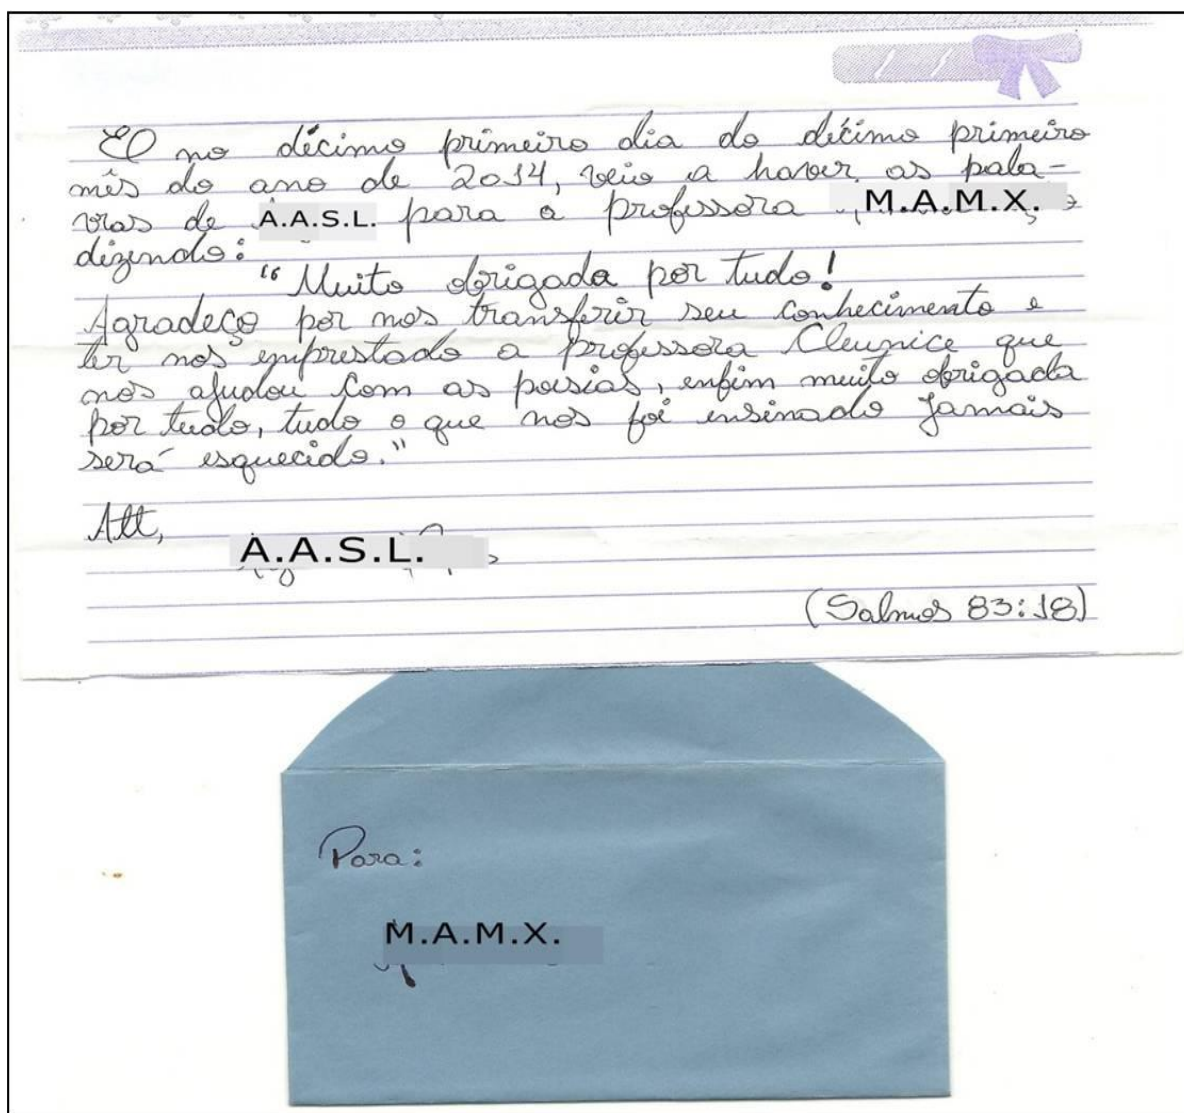 E no décimo primeiro dia do décimo primeiro
mês do ano de 2014, veio a haver as pala-
vras de A.A.S.L. para a professora M.A.M.X.
dizendo:
"Muito obrigada por tudo!
Agradeço por nos transferir seu conhecimento e
ter nos emprestado a professora Cleunice que
nos ajudou com as poesias, enfim muito obrigada
por tudo, tudo o que nos foi ensinado jamais
será esquecido."
Att,
A.A.S.L.
(Salmos 83:18)
Para:
M.A.M.X.